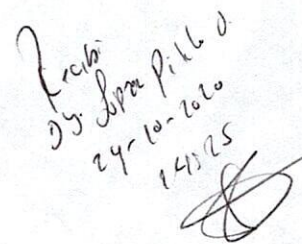 Recibi
Dg. Lopez Pihlo J.
24-10-2020
14:25